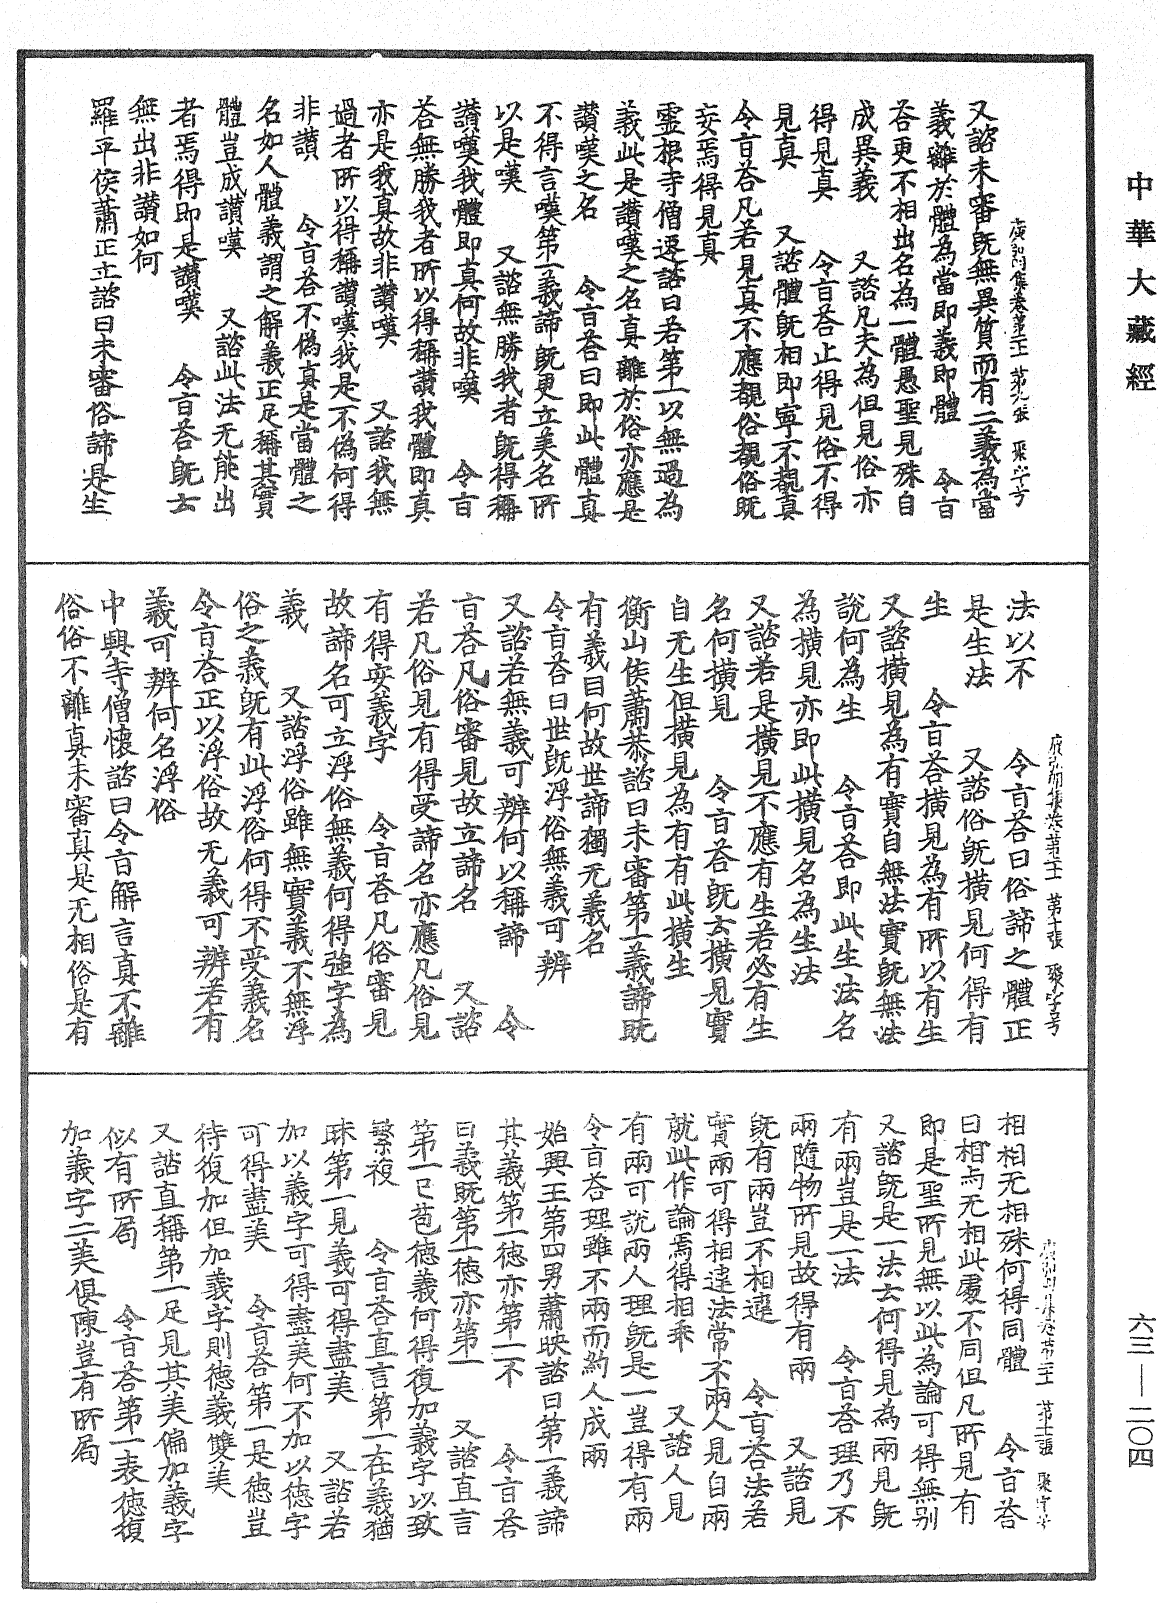 中華大藏經
六三—二〇四
廣弘明集卷第二十一 第九張 聚字号
又諮未審既無異質而有二義為當
義離於體為當即義即體 令旨
荅更不相出名為一體愚聖見殊自
成異義 又諮凡夫為但見俗亦
得見真 令旨荅止得見俗不得
見真 又諮體既相即寧不覩真
令旨荅凡若見真不應覩俗覩俗既
妄焉得見真
靈根寺僧遷諮曰若第一以無過為
義此是讃嘆之名真離於俗亦應是
讃嘆之名 令旨荅曰即此體真
不得言嘆第一義諦既更立美名所
以是嘆 又諮無勝我者既得稱
讃嘆我體即真何故非嘆 令旨
荅無勝我者所以得稱讃我體即真
亦是我真故非讃嘆 又諮我無
過者所以得稱讃嘆我是不偽何得
非讃 令旨荅不偽真是當體之
名如人體義謂之解義正足稱其實
體豈成讃嘆 又諮此法无能出
者焉得即是讃嘆 令旨荅既云
無出非讃如何
羅平侯蕭正立諮曰未審俗諦是生
廣弘明集卷第二十一 第十張 聚字号
法以不 令旨荅曰俗諦之體正
是生法 又諮俗既橫見何得有
生 令旨荅橫見為有所以有生
又諮橫見為有實自無法實既無法
說何為生 令旨荅即此生法名
為橫見亦即此橫見名為生法
又諮若是橫見不應有生若必有生
名何橫見 令旨荅既云橫見實
自无生但橫見為有有此橫生
衡山侯蕭恭諮曰未審第一義諦既
有義目何故世諦獨无義名
令旨荅曰世既浮俗無義可辨
又諮若無義可辨何以稱諦 令
旨荅凡俗審見故立諦名 又諮
若凡俗見有得受諦名亦應凡俗見
有得安義字 令旨荅凡俗審見
故諦名可立浮俗無義何得強字為
義 又諮浮俗雖無實義不無浮
俗之義既有此浮俗何得不受義名
令旨荅正以浮俗故无義可辨若有
義可辨何名浮俗
中興寺僧懷諮曰令旨解言真不離
俗俗不離真未審真是无相俗是有
廣弘明集卷第二十一 第十一張 聚字号
相相无相殊何得同體 令旨荅
曰相与无相此處不同但凡所見有
即是聖所見無以此為論可得無别
又諮既是一法云何得見為兩見既
有兩豈是一法 令旨荅理乃不
兩隨物所見故得有兩 又諮見
既有兩豈不相違 令旨荅法若
實兩可得相違法常不兩人見自兩
就此作論焉得相乖 又諮人見
有兩可說兩人理既是一豈得有兩
令旨荅理雖不兩而約人成兩
始興王第四男蕭映諮曰第一義諦
其義第一德亦第一不 令旨荅
曰義既第一德亦第一 又諮直言
第一已苞德義何得復加義字以致
繁複 令旨荅直言第一在義猶
昧第一見義可得盡美 又諮若
加以義字可得盡美何不加以德字
可得盡美 令旨荅第一是德豈
待復加但加義字則德義雙美
又諮直稱第一足見其美偏加義字
似有所局 令旨荅第一表德復
加義字二美俱陳豈有所局